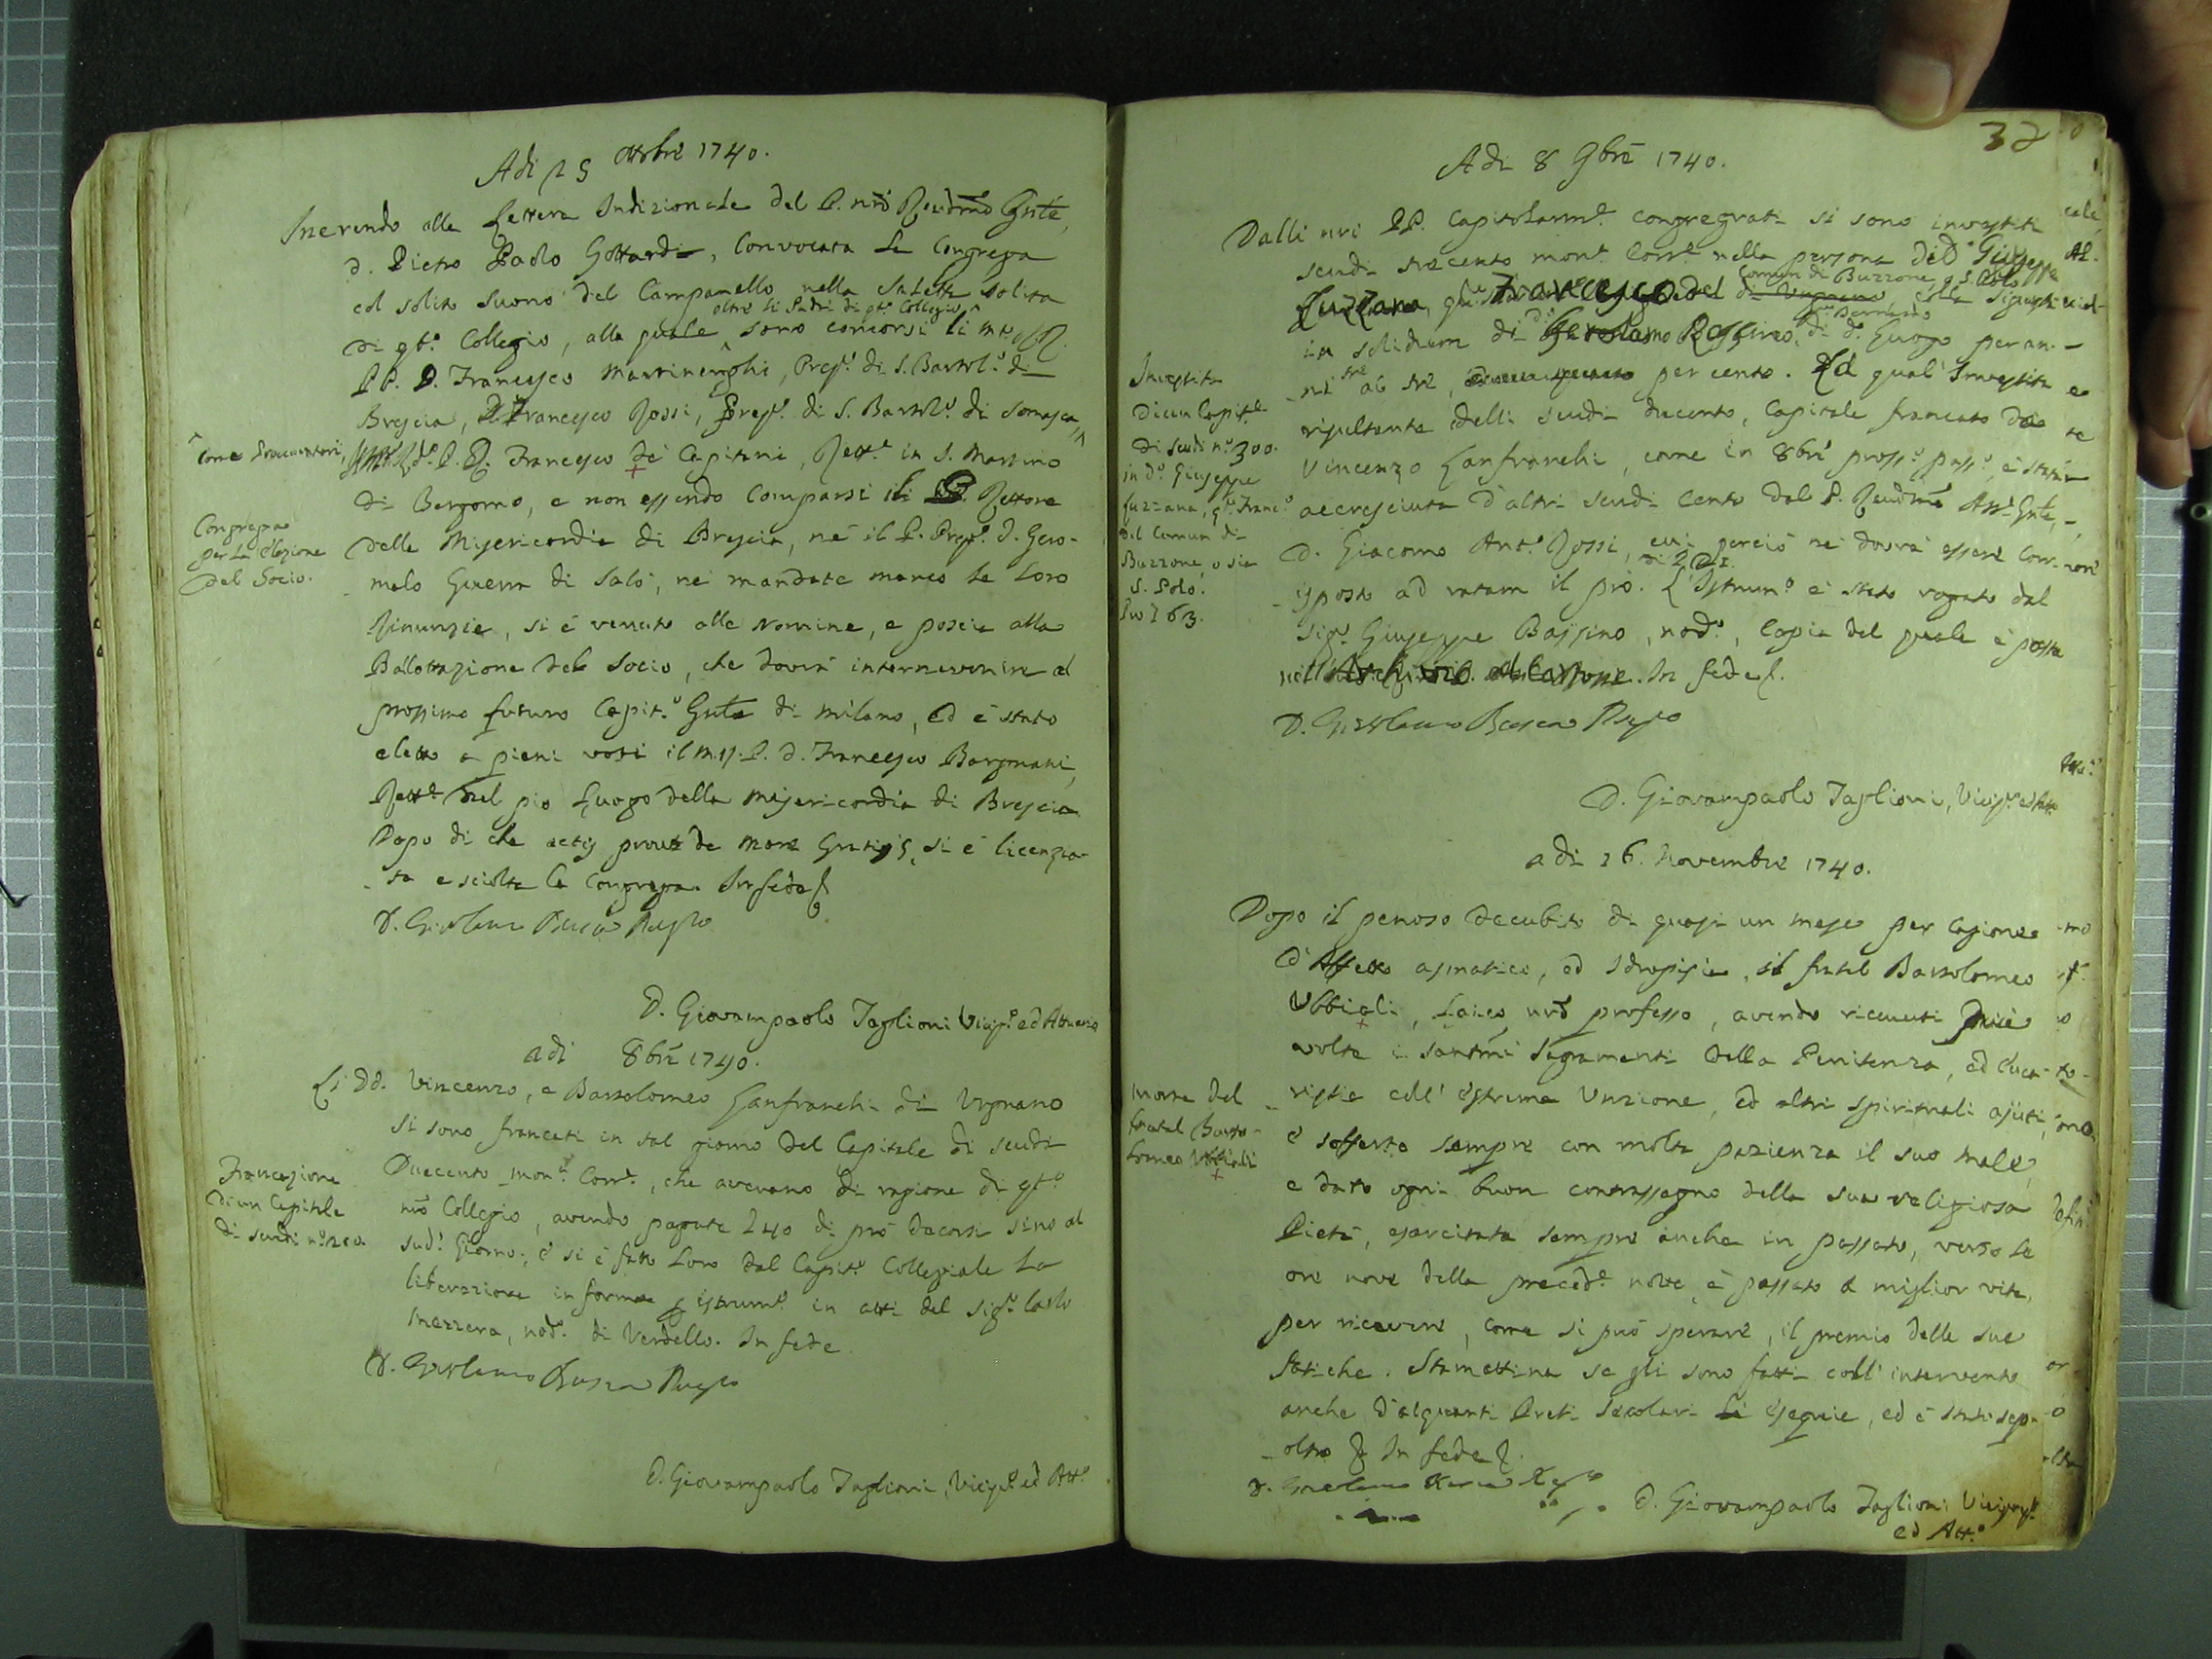 Adi 25 ottobre 1740.
Inerendo alla Lettera Indizionale del P. nro Reudmo Gnle,
d. Pietro Paolo Gottardi, convocata la Congrega
col solito suono del Campanello nella Saletta solita
oltre li Padri di qto. Collegio
di qto. Collegio, alla quale sono concorsi li M.to RR.
PP. D. Francesco Martinenghi, Prepo. di S. Bartolo. di
Brescia, D. Francesco Rossi, Prepo. di S. Bartolo. di Somasca,
come Provocatori,
Rdo. P. D. Francesco de Capitani, Rette. in S. Martino
di Bergomo, e non essendo comparsi il P. Rettore
Congrega
per la elezione
del Socio.
della Misericordia di Brescia, né il P. Prepo. D. Giro-
molo Guerra di Salò, né mandate manco le loro
Rinunzie, si é venuto alle nomine, e poscia alla
Ballottazione del Socio, che dovrà intervenire al
prossimo futuro Capit.o Gnle di Milano, ed é stato
eletto a pieni voti il M. R. P. D. Francesco Borgnani,
Rette. del pio Luogo della Misericordia di Brescia
Dopo di che actis prout de more gratijs, si é licenzia-
ta e sciolta la Congrega. In fede
D. Girolamo
D. Giovampaolo Taglioni Vicepo. ed Attuario
adi 8bre 1740.
Li DD. Vincenzo, e Bartolomeo Lanfranchi di Urgnano
si sono francati in tal giorno del Capitale di scudi
Francazione
di un Capitale
di scudi no. 200.
Duecento mon.a Corr.e, che avevano di ragione di qto.
nro Collegio, avendo pagate 240 di prò decorsi sino al
sud.o Giorno; e si é fatto loro dal Capit.o Collegiale la
liberazione in forma p istrum.o in atti del sig.r Carlo
Mazzera, nod.o di Verdello. In fede
D. Girolamo
D. Giovampaolo Taglioni, Vicepo. ed Att.o
32
Adi 8 9bre 1740.
Dalli nri PP. Capitolarm.e congregati si sono investiti
scudi trecento mon.a Corr.e nella persona di D. Giuseppe
Comun di Buzzone, o S. Polo
Luzzana, q. Francesco del di Urgnano, colla sigurtà
Bernardo
in solidum di Girolamo di do. Luogo per an-
ni tre al tre, per cento. La qual Investita e
Investita
di un Capit.e
di scudi no. 300.
in do. Giuseppe
Luzzana, q. Franc.o
del Comun di
Buzzone, o sia
S. Polo.
risultante delli scudi ducento, Capitale francato da
Vincenzo Lanfranchi, come in 8bre pross.o pass.o, é stata
accresciuta d'altri scudi cento dal P. Reudmo Ass.e Gnle,
D. Giacomo Ant.o Rossi, cui perciò né dovrà essere corr-
isposto ad ratam il prò. L'Istrum.o é stato rogato dal
Sig.r Giuseppe Bassino, nod.o, Copia del quale é posta
nell' Archivio. In fede.
D. Girolamo
D. Giovampaolo Taglioni, Vicepo. ed Att.
adi 16. Novembre 1740.
Dopo il penoso decubito di quasi un mese per cagione
d'Affetto asmatico, ed Idropisia, il fratel Bartolomeo
Ubbiali, Laico nro professo, avendo ricevuti più
volte i santmi Sagramenti della Penitenza, ed Euca-
ristia coll' estrema Unzione, ed altri spirituali ajuti,
Morte del
fratel Barto-
lomeo Ubbiali
é sofferto sempre con molta pazienza il suo male,
e dato ogni buon contrassegno della sua religiosa
Pietà, esercitata sempre anche in passato, verso le
ore nove della preced.e notte, é passato a miglior vita,
per ricevere, come si può sperare, il premio delle sue
fatiche. Stamattina se gli sono fatti coll' intervento
anche d'alquanti Preti Secolari le esequie, ed é stato sep-
olto. In fede.
D. Girolamo
D. Giovampaolo Taglioni Vicepo.
ed Att.o